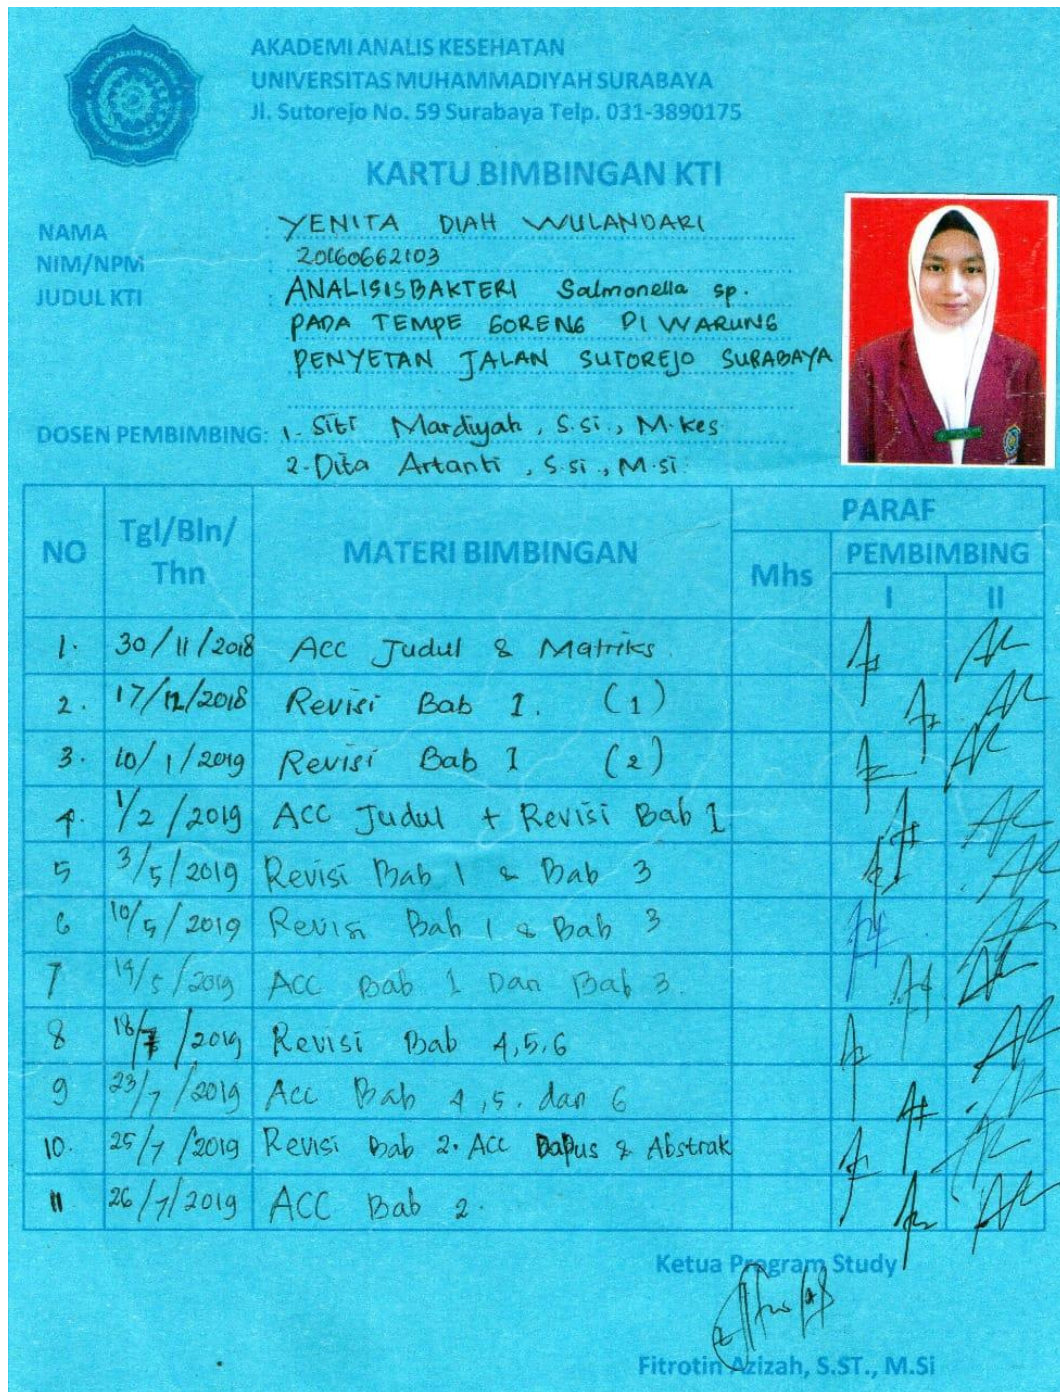 AKADEMI ANALIS KESEHATAN
UNIVERSITAS MUHAMMADIYAH SURABAYA
Jl. Sutorejo No. 59 Surabaya Telp. 031-3890175
KARTU BIMBINGAN KTI
NAMA : YENITA DIAH WULANDARI
NIM/NPM : 20160662103
JUDUL KTI : ANALISIS BAKTERI Salmonella sp.
PADA TEMPE GORENG DI WARUNG
PENYETAN JALAN SUTOREJO SURABAYA
DOSEN PEMBIMBING: 1. Siti Mardiyah, S.si., M.kes
2. Dita Artanti, S.si., M.si
NO Tgl/Bln/Thn MATERI BIMBINGAN PARAF
Mhs PEMBIMBING
I II
1. 30/11/2018 Acc Judul & Matriks.
2. 17/12/2018 Revisi Bab 1. (1)
3. 10/1/2019 Revisi Bab 1 (2)
4. 1/2/2019 ACC Judul + Revisi Bab 1
5 3/5/2019 Revisi Bab 1 & Bab 3
6 10/5/2019 Revisi Bab 1 & Bab 3
7 14/5/2019 ACC Bab 1 Dan Bab 3.
8 18/7/2019 Revisi Bab 4,5,6
9 23/7/2019 Acc Bab 4,5. dan 6
10. 25/7/2019 Revisi Bab 2. Acc Dapus & Abstrak
11 26/7/2019 ACC Bab 2.
Ketua Program Study
Fitrotin Azizah, S.ST., M.Si